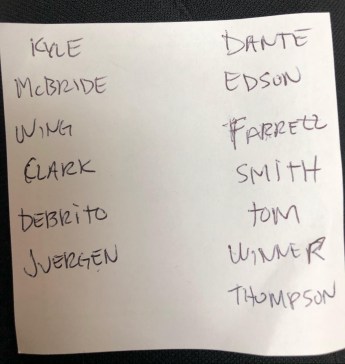 KYLE
McBRIDE
WING
CLARK
DEBRITO
JUERGEN
DANTE
EDSON
FARRELL
SMITH
TOM
WINNER
THOMPSON